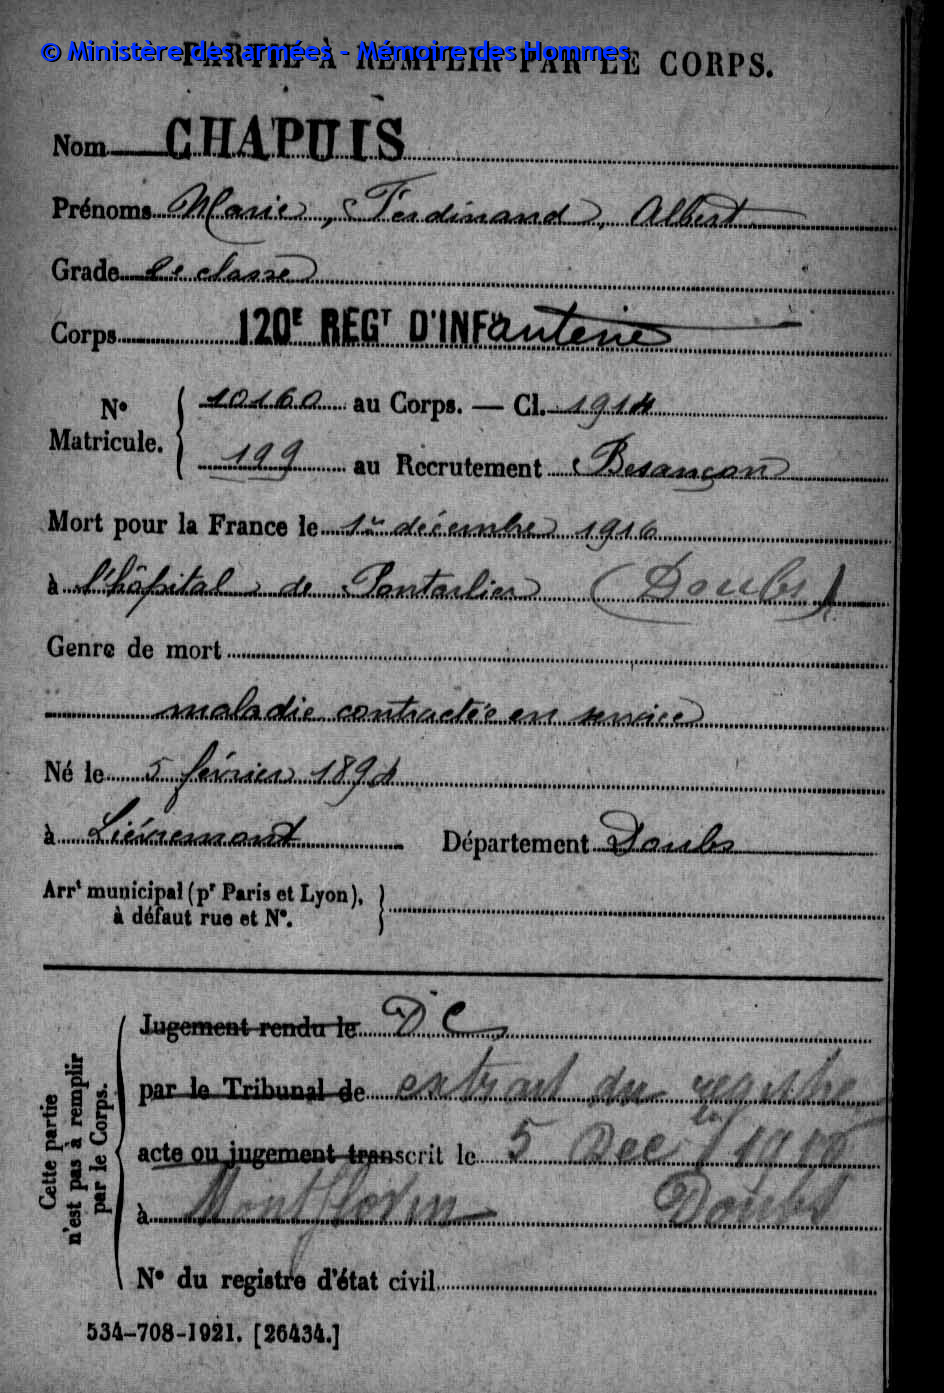 © Ministère des armées - Mémoire des Hommes
PARTIE À REMPLIR PAR LE CORPS.
Nom CHAPUIS
Prénoms Marie, Ferdinand, Albert
Grade 2e classe
Corps 120E REGT D'INFanterie
No Matricule. { 10160 au Corps. — Cl. 1914
199 au Recrutement Besançon
Mort pour la France le 1er décembre 1916
à l'hôpital de Pontarlier (Doubs)
Genre de mort
maladie contractée en service
Né le 5 février 1894
à Liévremont Département Doubs
Arrt municipal (pr Paris et Lyon),
à défaut rue et No. }
Cette partie n'est pas à remplir par le Corps.
Jugement rendu le D C
par le Tribunal de extrait du registre
acte ou jugement transcrit le 5 Dec 1916
à Montflovin Doubs
No du registre d'état civil
534-708-1921. [26434.]